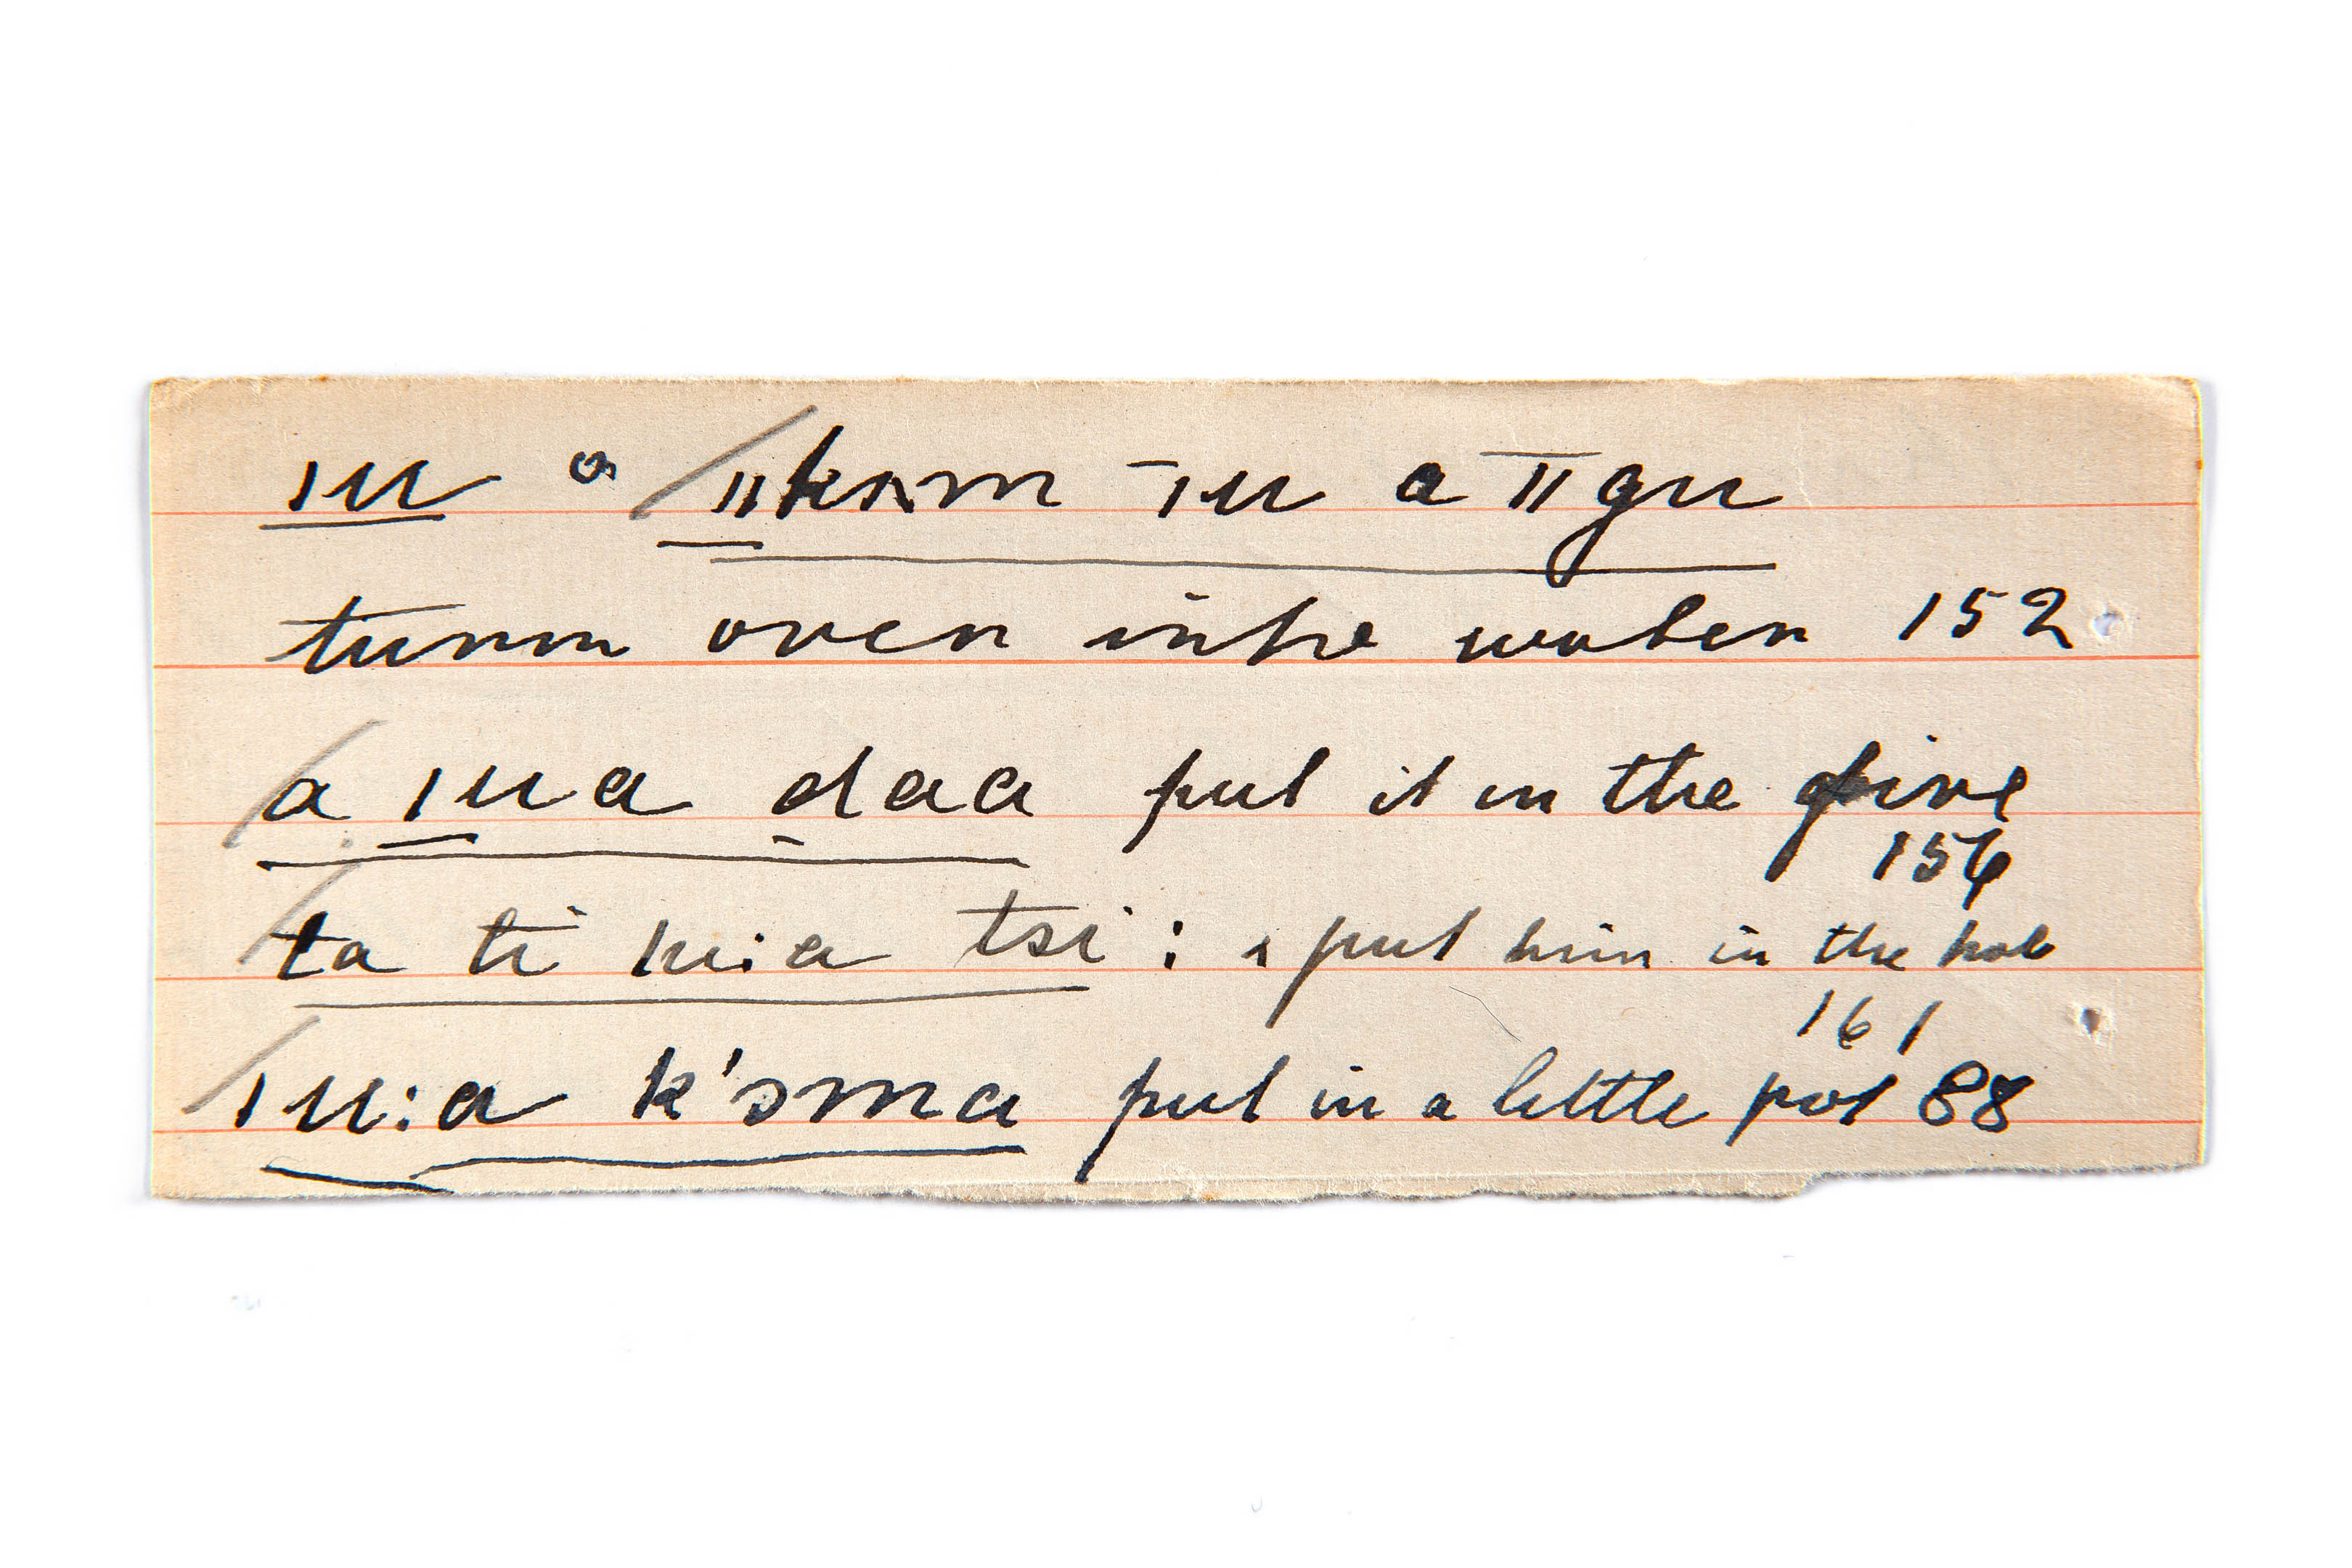 ıu a /ıık:ım ˉıu a ıı̄gu
turm over into water 152
/a ıua daa put it in the fire
156
/ta ti hi:a tsi : & put him in the hole
161
/ıu:a k'ɔma put in a little pot 88